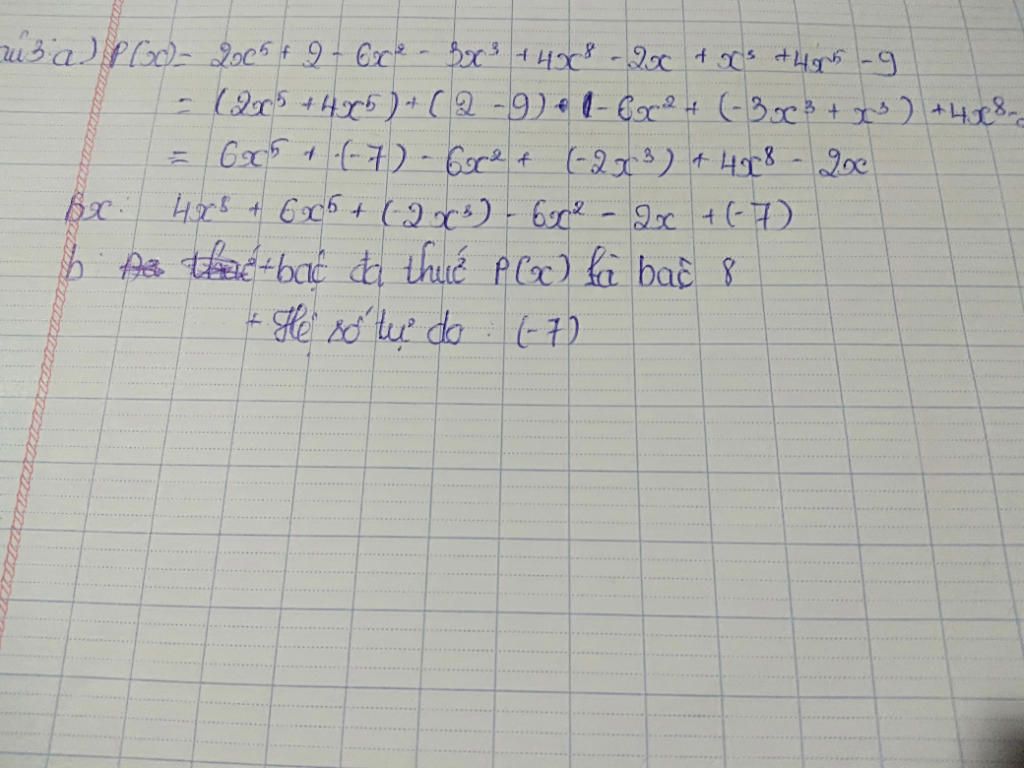 3 a) P(x) = 2x⁵ + 2 - 6x² - 3x³ + 4x⁸ - 2x + x³ + 4x⁵ - 9
= (2x⁵ + 4x⁵) + (2 - 9) - 6x² + (-3x³ + x³) + 4x⁸ -
= 6x⁵ + (-7) - 6x² + (-2x³) + 4x⁸ - 2x
4x⁸ + 6x⁵ + (-2x³) - 6x² - 2x + (-7)
b. + bậc đa thức P(x) là bậc 8
+ Hệ số tự do : (-7)